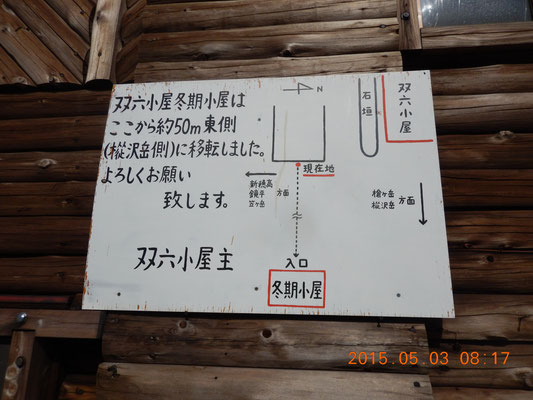 双六小屋冬期小屋は
ここから約50m東側
(樅沢岳側)に移転しました。
よろしくお願い
致します。
双六小屋主
N
石垣
双六小屋
現在地
新穂高
鏡平
笠ヶ岳
方面
槍ヶ岳
樅沢岳
方面
入口
冬期小屋
2015.05.03 08:17